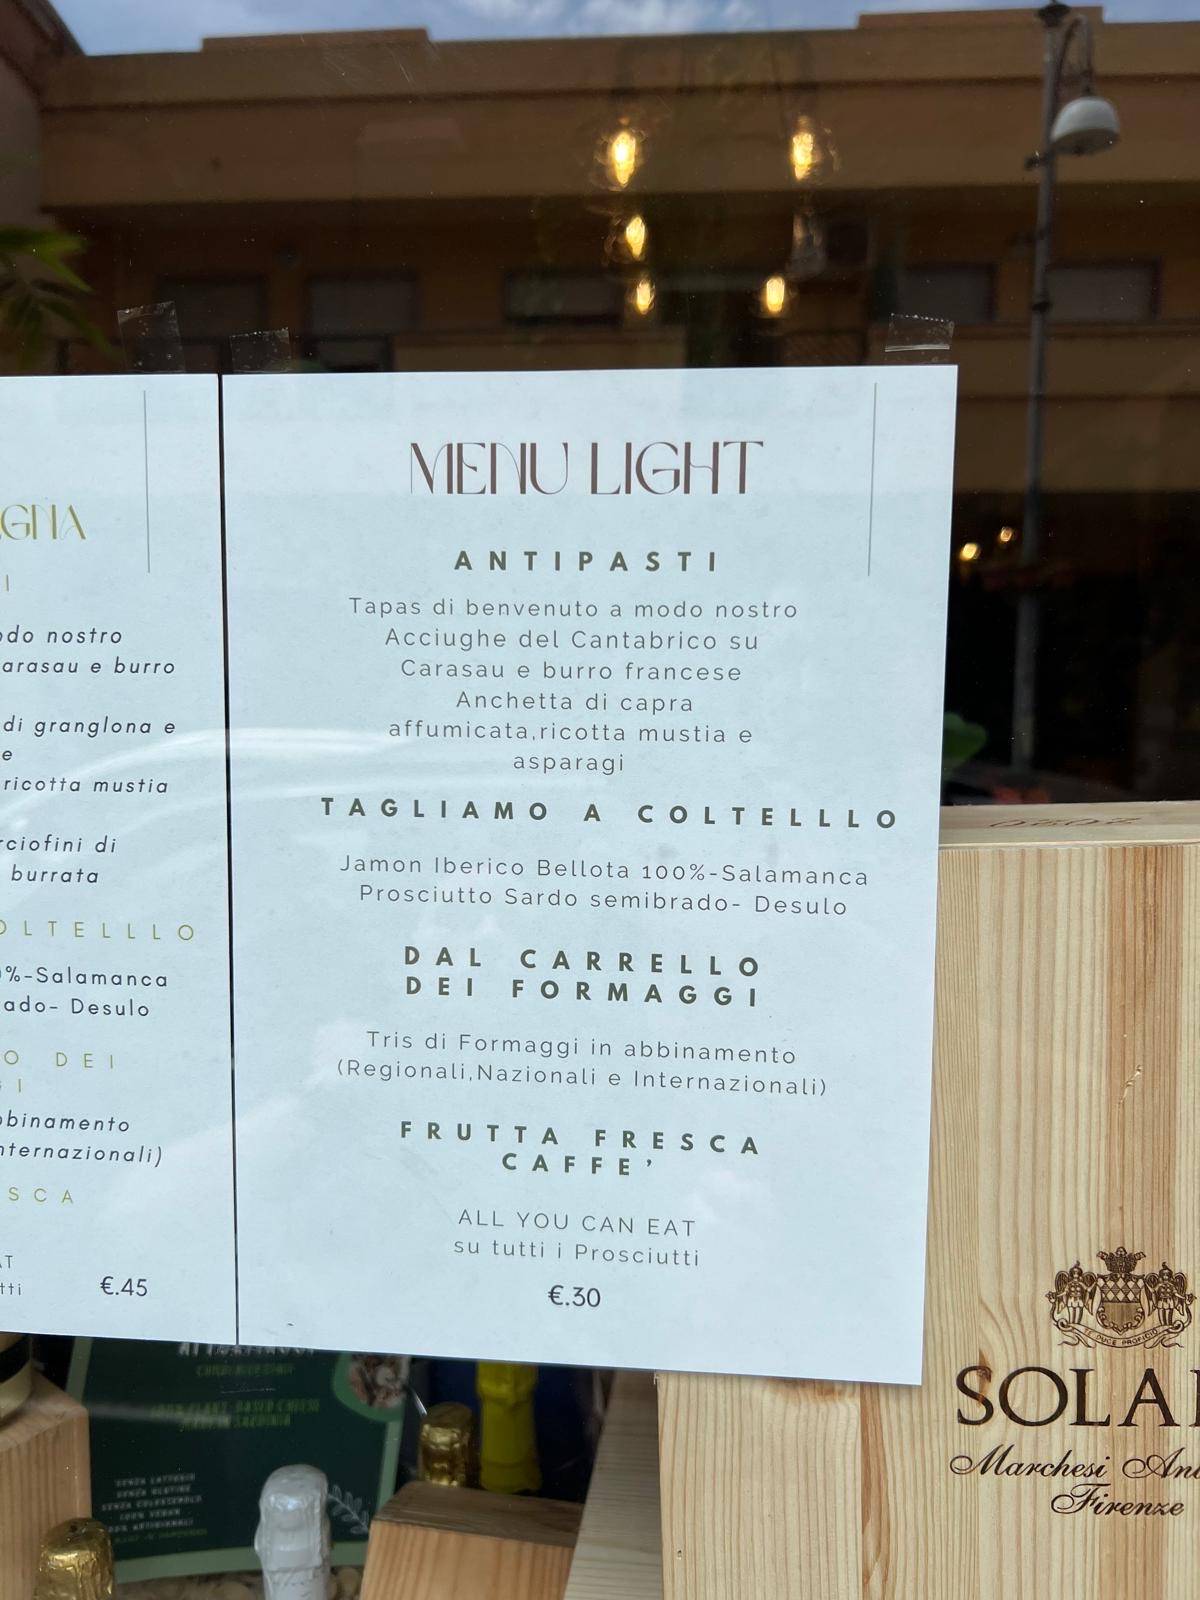 AGNA
I
odo nostro
arasau e burro
di granglona e
e
ricotta mustia
rciofini di
burrata
OLTELLLO
0%-Salamanca
ado- Desulo
O DEI
GI
bbinamento
nternazionali)
SCA
AT
tti
€.45
MENU LIGHT
ANTIPASTI
Tapas di benvenuto a modo nostro
Acciughe del Cantabrico su
Carasau e burro francese
Anchetta di capra
affumicata,ricotta mustia e
asparagi
TAGLIAMO A COLTELLLO
Jamon Iberico Bellota 100%-Salamanca
Prosciutto Sardo semibrado- Desulo
DAL CARRELLO
DEI FORMAGGI
Tris di Formaggi in abbinamento
(Regionali,Nazionali e Internazionali)
FRUTTA FRESCA
CAFFE'
ALL YOU CAN EAT
su tutti i Prosciutti
€.30
100% PLANT-BASED CHEESE
MADE IN SARDINIA
SENZA LATTOSIO
SENZA GLUTINE
SENZA COLESTEROLO
100% VEGAN
100% ARTIGIANALI
TE DUCE PROFICIO
SOLAI
Marchesi Ant
Firenze